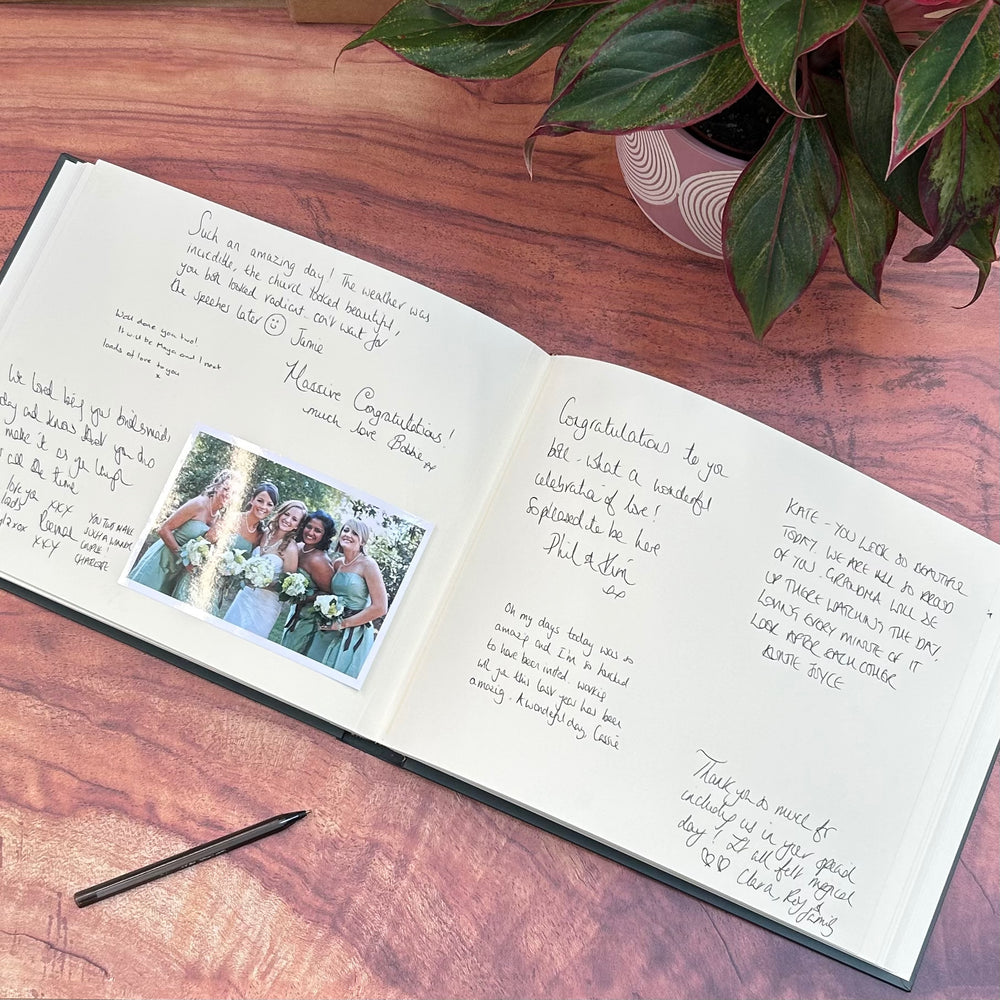 Such an amazing day! The weather was
incredible, the church looked beautiful,
you both looked radiant. can't wait for
the speeches later Jamie
Well done you two!
It will be Maya and I next
loads of love to you
x
Massive Congratulations!
much love Bobbie xx
We loved being your bridesmaids
day and know that you two
make it as you laugh
all the time
love you xxx
xxx
YOU TWO MAKE
SUCH A
COUPLE!
CHARLOTTE
Congratulations to you
both - what a wonderful
celebration of love!
So pleased to be here
Phil & Kim
xx
Oh my days today was so
amazing and I'm so honoured
to have been invited. working
with you this last year has been
amazing. A wonderful day, Cassie
KATE - YOU LOOK SO BEAUTIFUL
TODAY. WE ARE ALL SO PROUD
OF YOU. GRANDMA WILL BE
UP THERE WATCHING THE DAY,
LOVING EVERY MINUTE OF IT
LOOK AFTER EACH OTHER
AUNTIE JOYCE
Thank you so much for
including us in your special
day! It all felt magical
Clara, Roy &
family